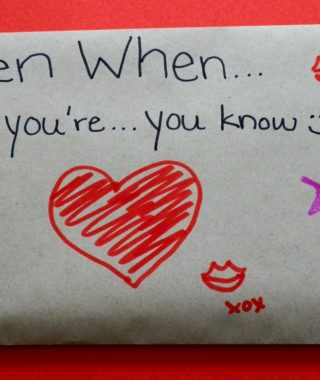 en When...
you're... you know :)
xox